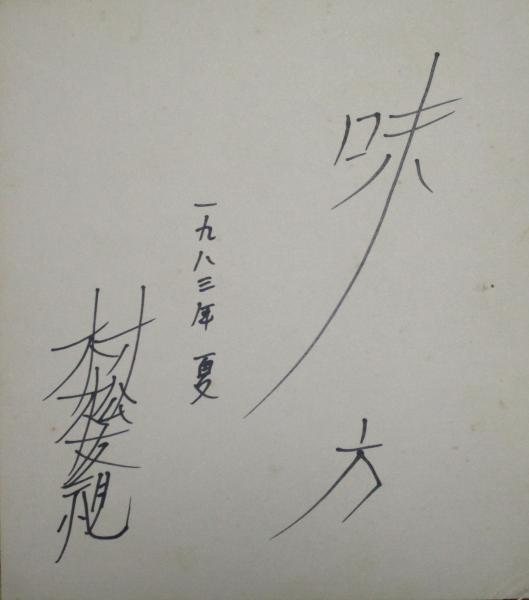 味方
一九八三年 夏
村松友視